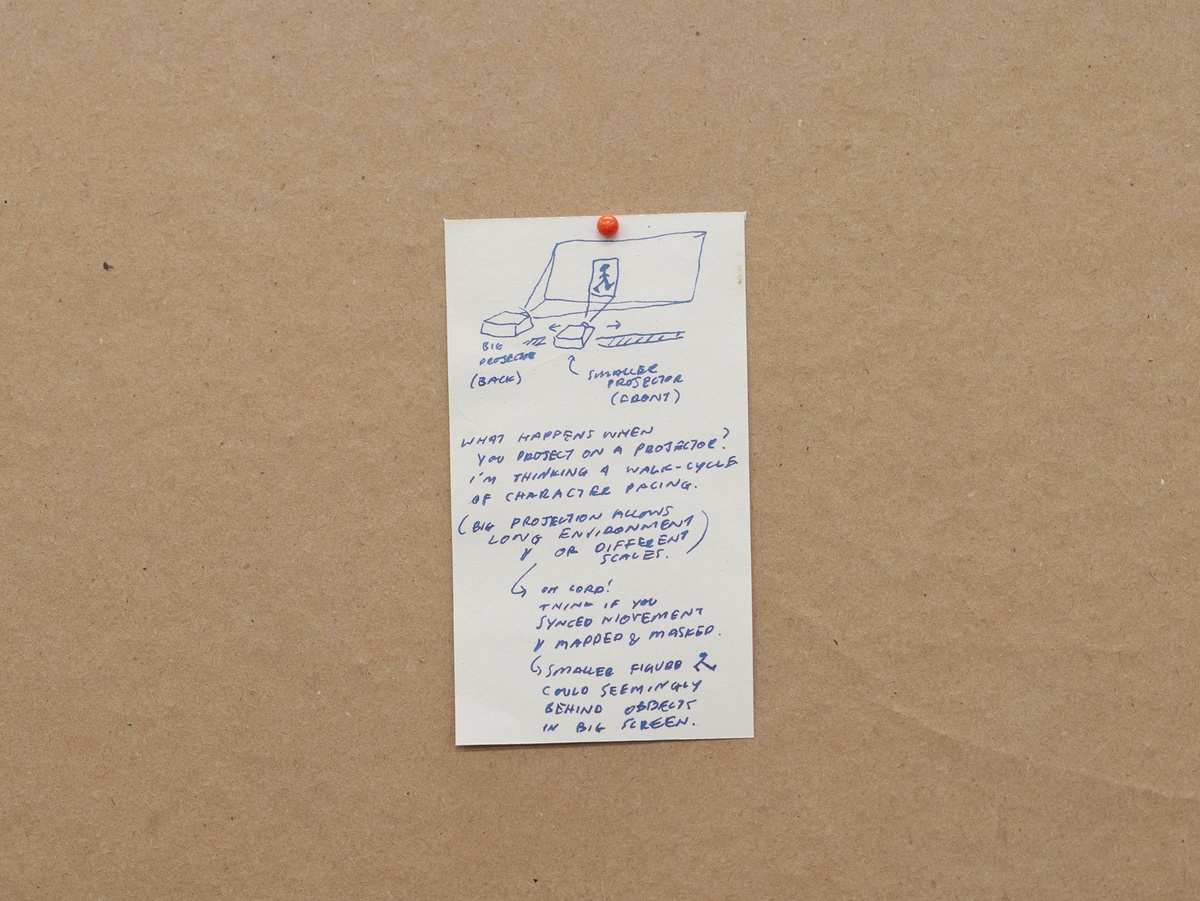 BIG
PROJECTOR
(BACK)
SMALLER
PROJECTOR
(FRONT)
WHAT HAPPENS WHEN
YOU PROJECT ON A PROJECTOR?
I'M THINKING A WALK-CYCLE
OF CHARACTER PACING.
(BIG PROJECTION ALLOWS
LONG ENVIRONMENT
& OR DIFFERENT
SCALES.)
OH LORD!
THINK IF YOU
SYNCED MOVEMENT
& MAPPED & MASKED.
SMALLER FIGURE
COULD SEEMINGLY
BEHIND OBJECTS
IN BIG SCREEN.